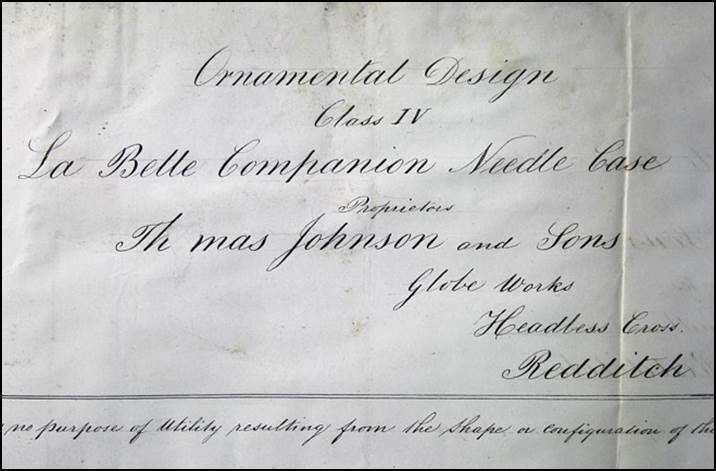 Ornamental Design
Class IV
La Belle Companion Needle Case
Proprietors
Th mas Johnson and Sons
Globe Works
Headless Cross.
Redditch
no purpose of Utility resulting from the shape or configuration of the